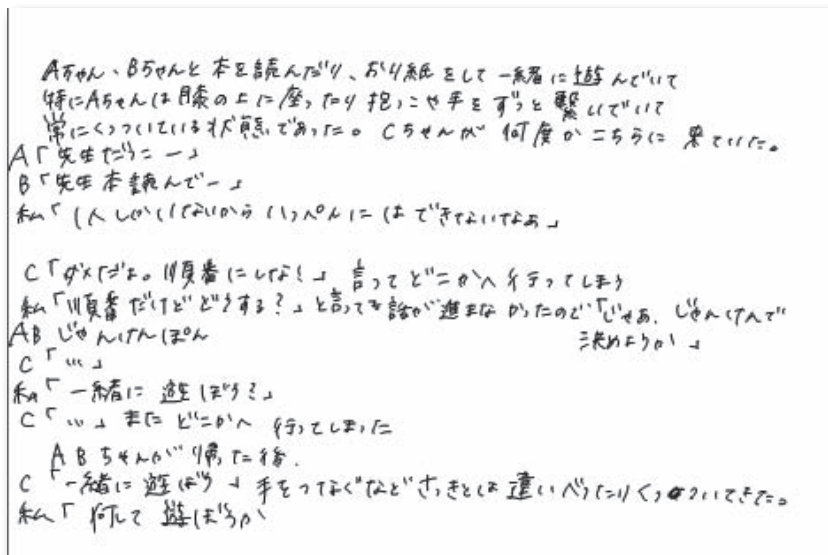 Aちゃん、Bちゃんと本を読んだり、おり紙をして一緒に遊んでいて
特にAちゃんは膝の上に座ったり抱っこや手をずっと繋いでいて
常にくっついている状態であった。Cちゃんが何度かこちらに来ていた。
A「先生だっこー」
B「先生本読んでー」
私「1人しかいないからいっぺんにはできないなぁ」
C「ダメだよ。順番にしな!」言ってどこかへ行ってしまう
私「順番だけどどうする?」と言っても話が進まなかったので「じゃあ、じゃんけんで
決めようか」
AB じゃんけんぽん
C「…」
私「一緒に遊ぼう?」
C「…」またどこかへ行ってしまった
ABちゃんが帰った後、
C「一緒に遊ぼう」手をつなぐなどさっきとは違いべったりくっついてきた。
私「何して遊ぼうか